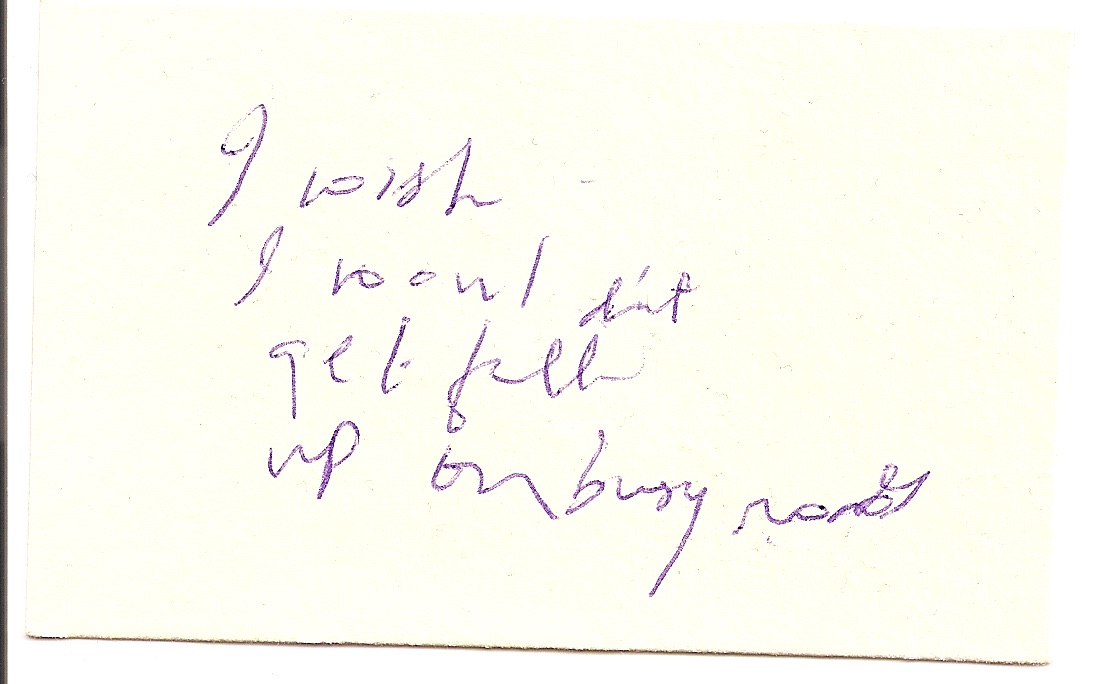 I wish
I woul dn't
get
up on busy roads